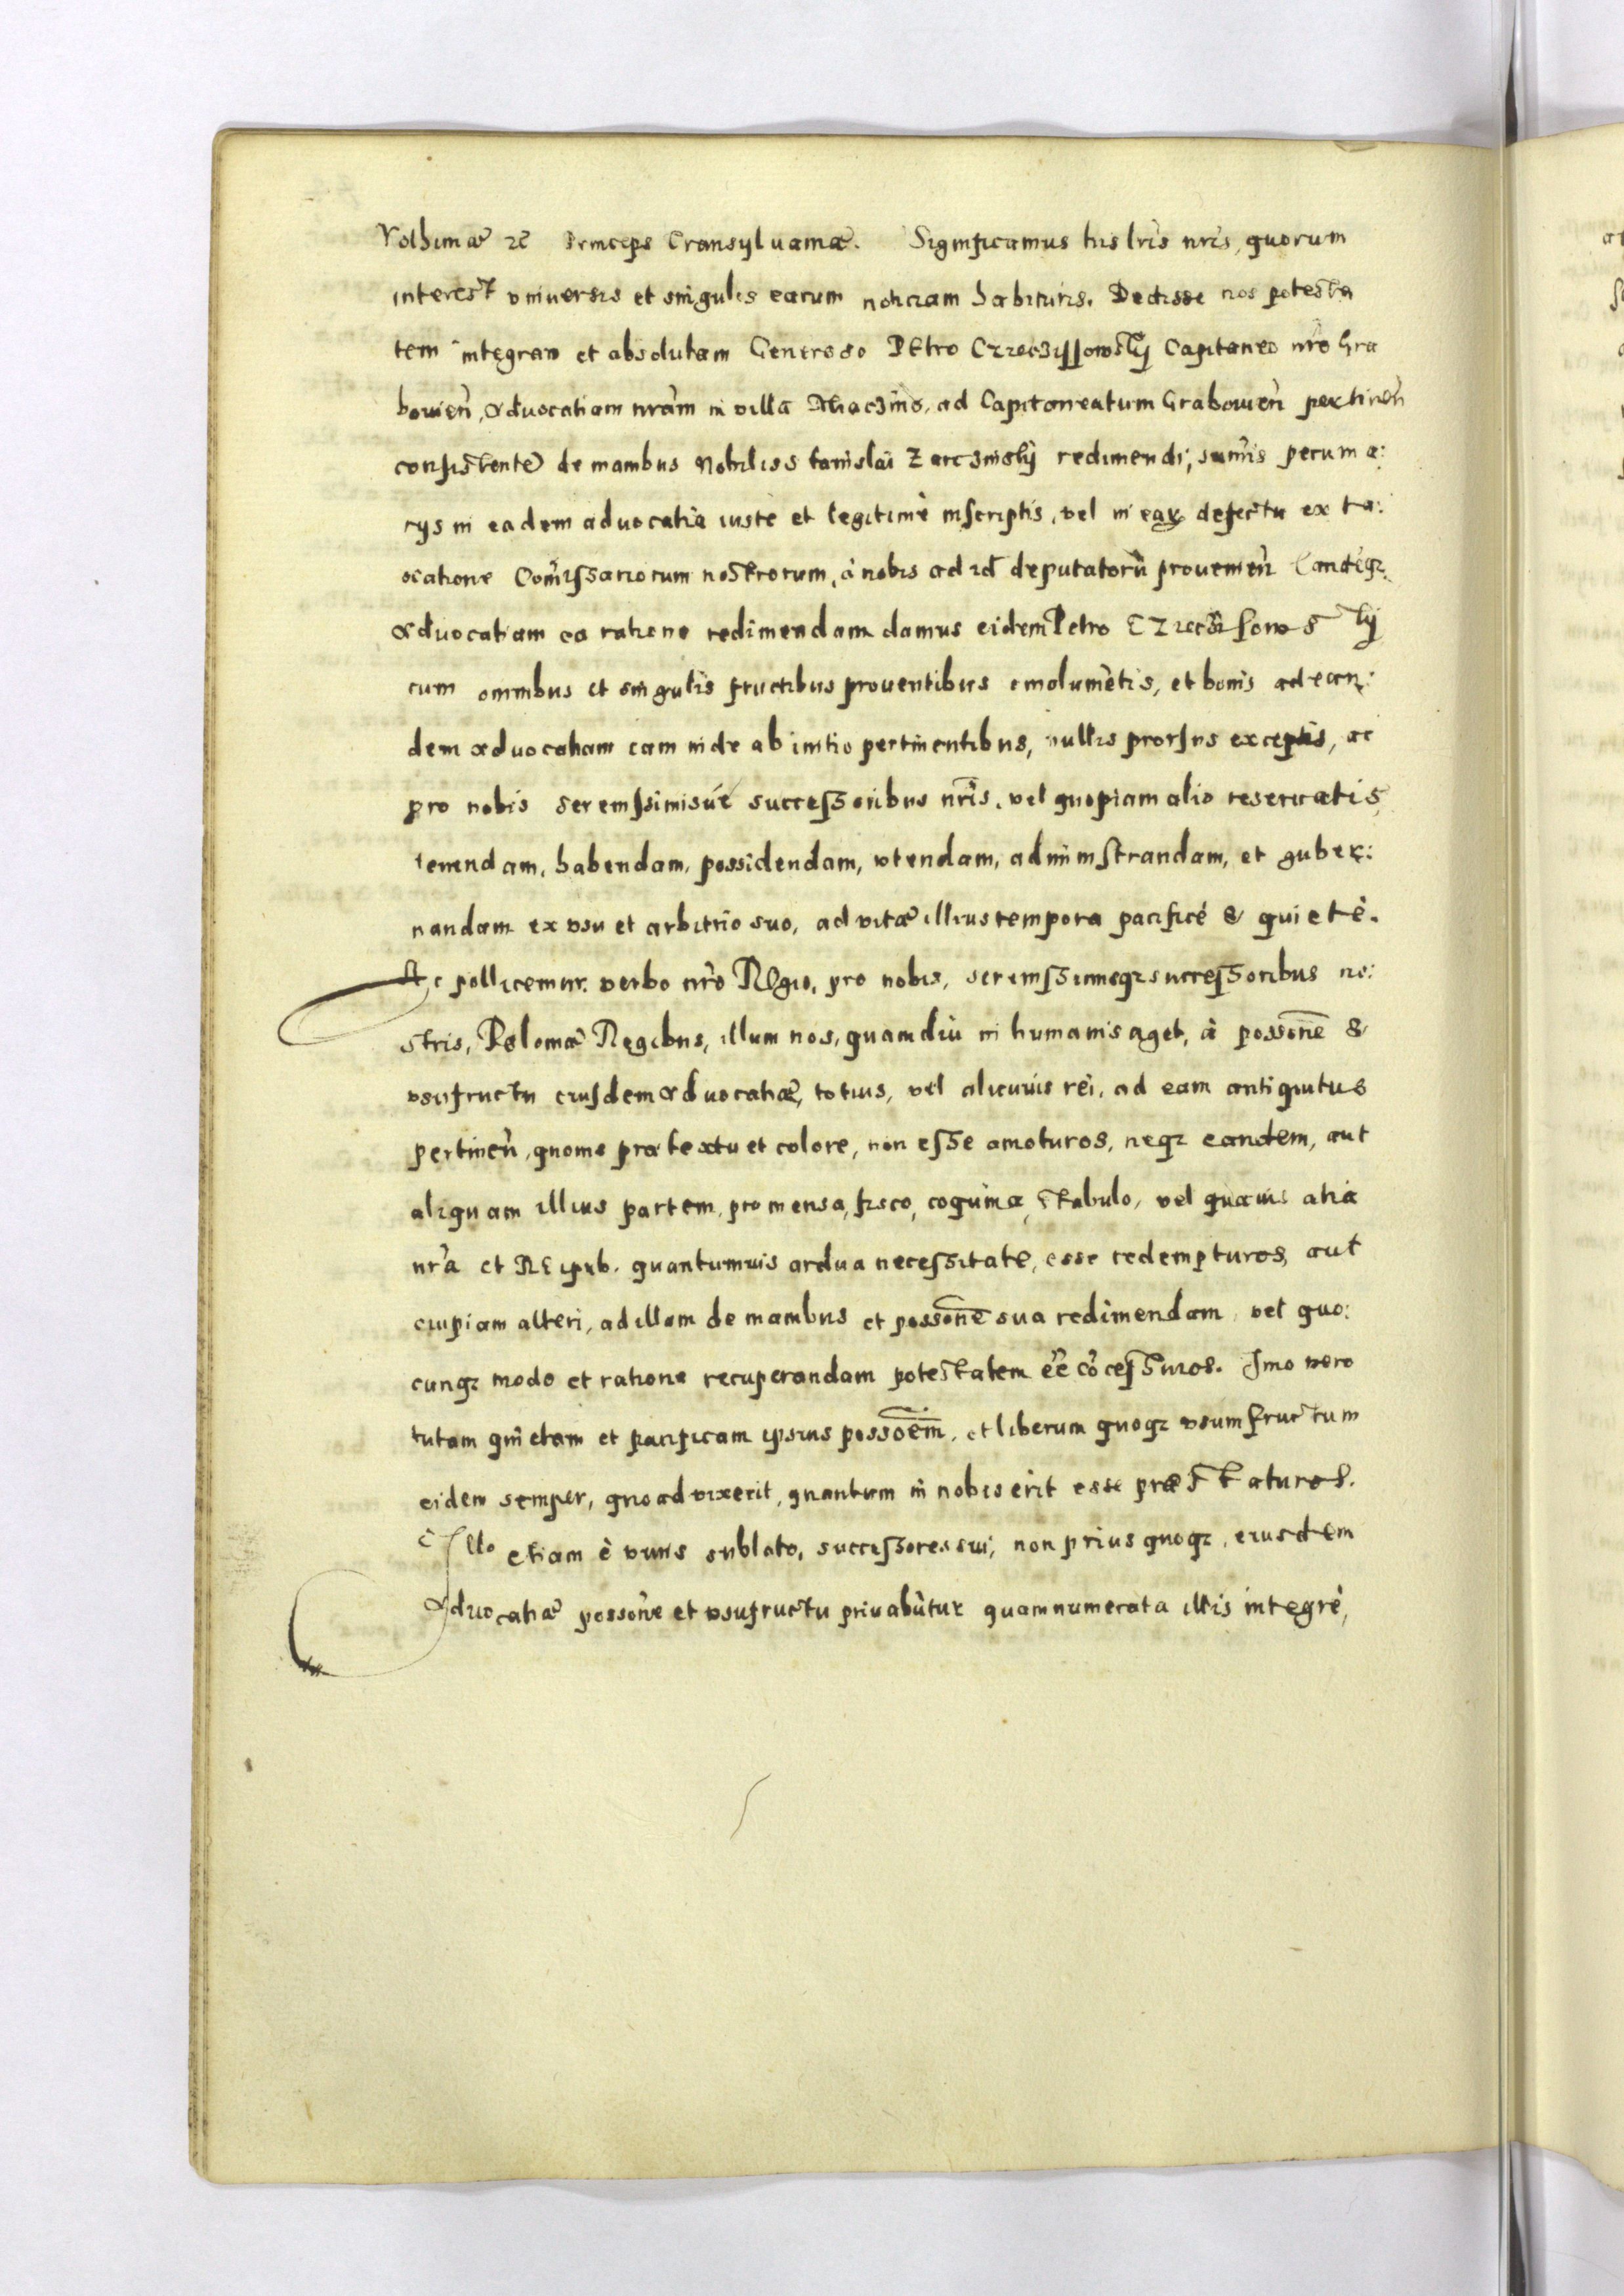 Volhiniæ zc̃ Princeps Transyluaniæ. Significamus his lrìs nrìs, quorum
interest vniuersis et singulis earum noticiam habituris. Dedisse nos potesta
tem integram et absolutam Generoso PEtro Capitaneo nrò Gra
bouieñ, Aduocatiam nràm in villa ad Capitaneatum Grabouieñ pertineñ
consistentẽ de manibus Nobilis Stanislai redimendi, sum̃is pecunia:
rys in eadem aduocatia iustè et legitimè inscriptis, vel in eaꝝ defectu ex ta:
Com̃issariorum nostrorum, à nobis ad id deputatorũ prouenieñ Eandẽqꝫ
Aduocatiam ea ratione redimendam damus eidem Petro
cum omnibus et singulis fructibus prouentibus emolumẽtis, et bonis ad ean:
dem aduocatiam iam inde ab initio pertinentibus, nullis prorsus exceptis, ac
pro nobis serenissimisuè successoribus nrìs, vel quopiam alio reseruatis,
tenendam, habendam, possidendam, vtendam, administrandam, et guber:
nandam ex vsu et arbitrio suo, ad vitæ illius tempora pacificè & quietè.
Ac pollicemur verbo nrò REgio, pro nobis, serenissimisqꝫ successoribus no:
stris, Poloniæ Regibus, illum nos, quamdiù in humanis aget, à possone &
vsufructu eiusdem Aduocatiæ, totius, vel alicuius rei, ad eam antiquitus
pertineñ, quouis prætextu et colore, non esse amoturos, neqꝫ eandem, aut
aliquam illius partem, pro mensa, fisco, coquina, stabulo, vel quauis alia
nrà et REipub. quantumuis ardua necessitate, esse redempturos, aut
cuipiam alteri, ad illam de manibus et possone sua redimendam, vel quo:
cunqꝫ modo et ratione recuperandam potestatem eẽ cõcessuros. Imo vero
tutam quietam et pacificam ipsius possoem, et liberum quoqꝫ vsumfructum
eidem semper, quoad vixerit, quantum in nobis erit esse præstaturos.
Illo etiam è viuis sublato, successores sui, non prius quoqꝫ, eiusdem
Aduocatiæ possone et vsufructu priuabũtur quam numerata illis integrè,